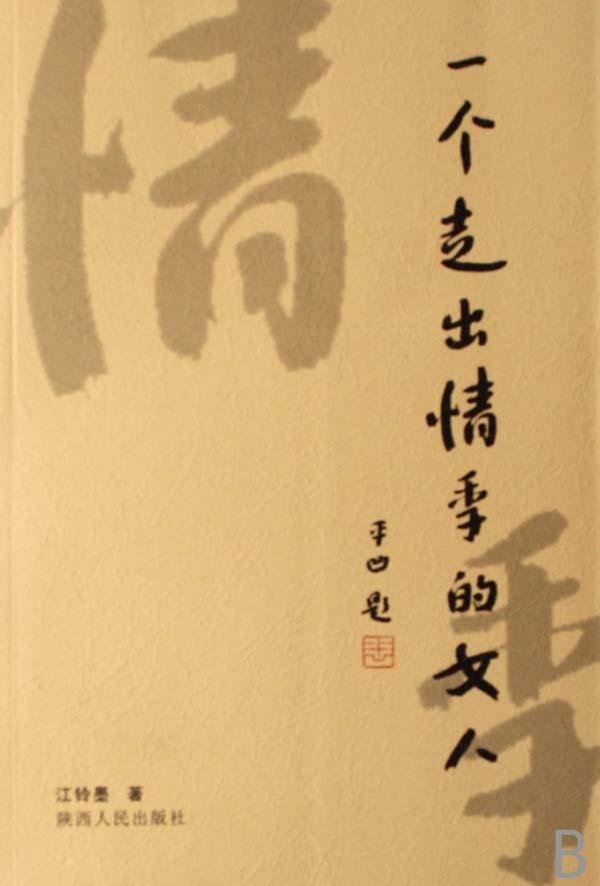 一个走出情季的女人
平凹题
情季
江铃墨 著
陕西人民出版社
B